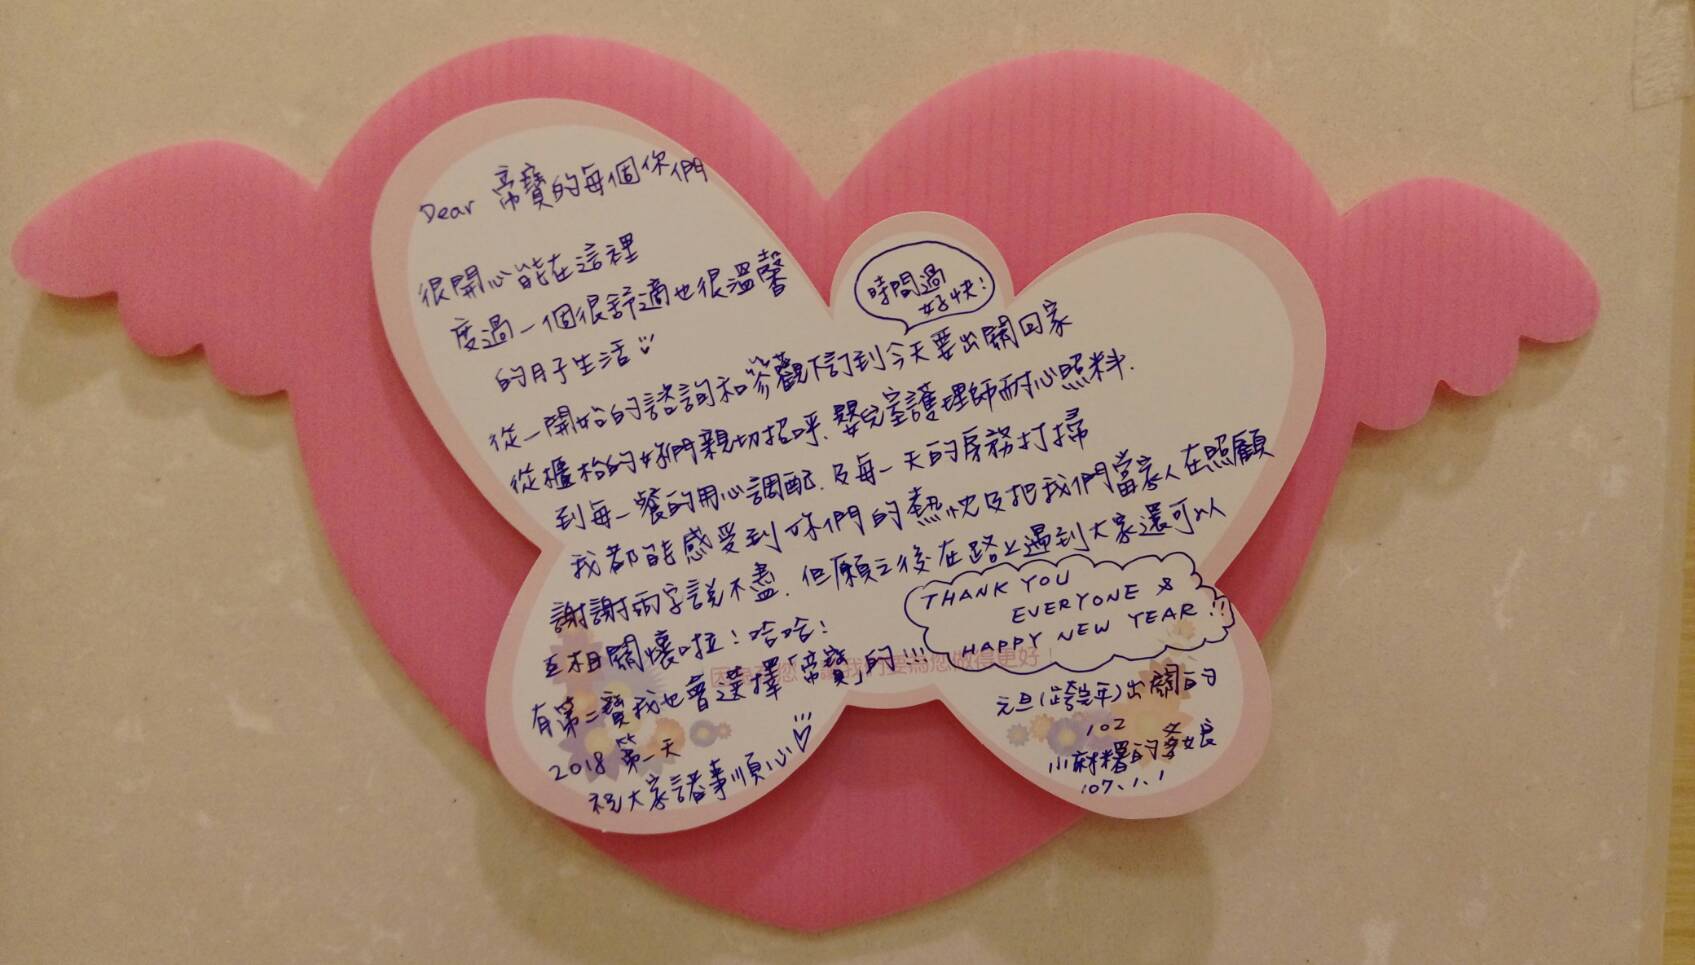 Dear 帝寶的每個你們
很開心能在這裡
度過一個很舒適也很溫馨
的月子生活
時間過
好快!
從一開始的諮詢和參觀下訂到今天要出關回家
從櫃枱的妳們親切招呼、嬰兒室護理師耐心照料、
到每一餐的用心調配、及每一天的房務打掃
我都能感受到妳們的熱忱及把我們當家人在照顧
謝謝兩字說不盡、但願之後在路上遇到大家還可以
互相關懷啦!哈哈!
有第二寶我也會選擇「帝寶」的!!!
2018 第一天
祝大家諸事順心
THANK YOU
EVERYONE &
HAPPY NEW YEAR!!
元旦(跨年)出關的
102
小麻糬的爹娘
107.1.1